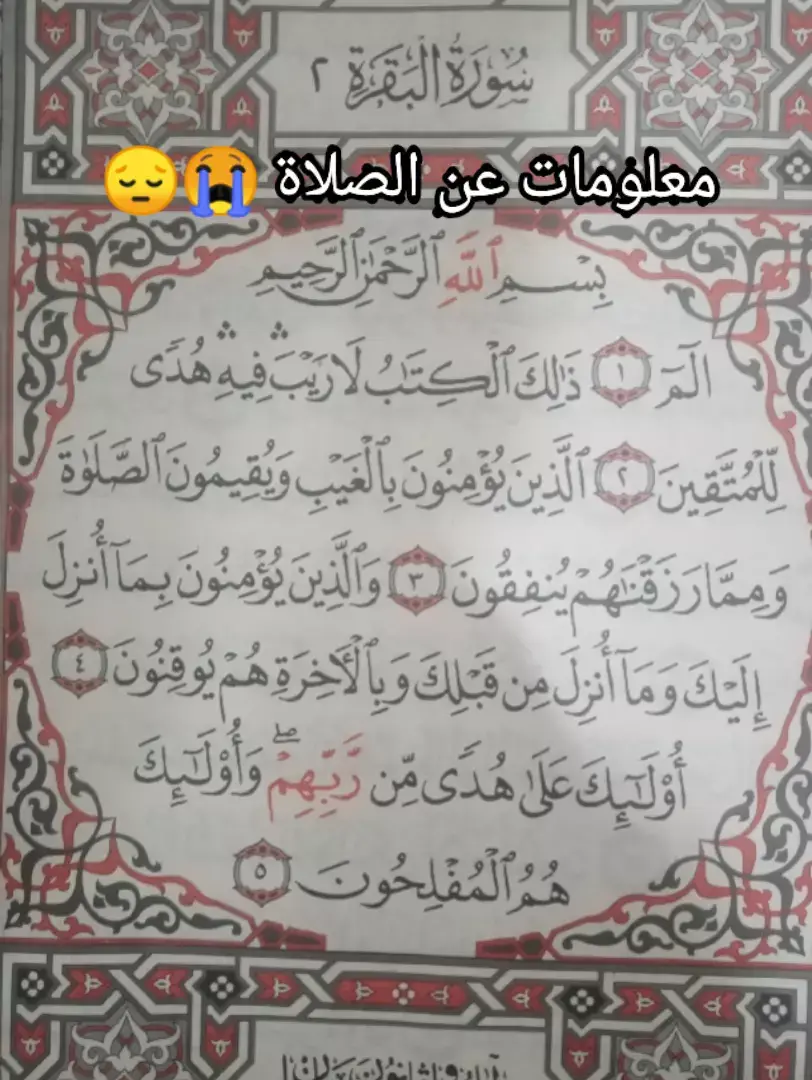 سُورَةُ الْبَقَرَةِ ٢
معلومات عن الصلاة 😭😔
بِسْمِ ٱللَّهِ ٱلرَّحْمَٰنِ ٱلرَّحِيمِ
الٓمٓ ١ ذَٰلِكَ ٱلْكِتَٰبُ لَا رَيْبَ ۛ فِيهِ ۛ هُدًى
لِّلْمُتَّقِينَ ٢ ٱلَّذِينَ يُؤْمِنُونَ بِٱلْغَيْبِ وَيُقِيمُونَ ٱلصَّلَوٰةَ
وَمِمَّا رَزَقْنَٰهُمْ يُنفِقُونَ ٣ وَٱلَّذِينَ يُؤْمِنُونَ بِمَآ أُنزِلَ
إِلَيْكَ وَمَآ أُنزِلَ مِن قَبْلِكَ وَبِٱلْأَخِرَةِ هُمْ يُوقِنُونَ ٤
أُوْلَٰٓئِكَ عَلَىٰ هُدًى مِّن رَّبِّهِمْ ۖ وَأُوْلَٰٓئِكَ
هُمُ ٱلْمُفْلِحُونَ ٥